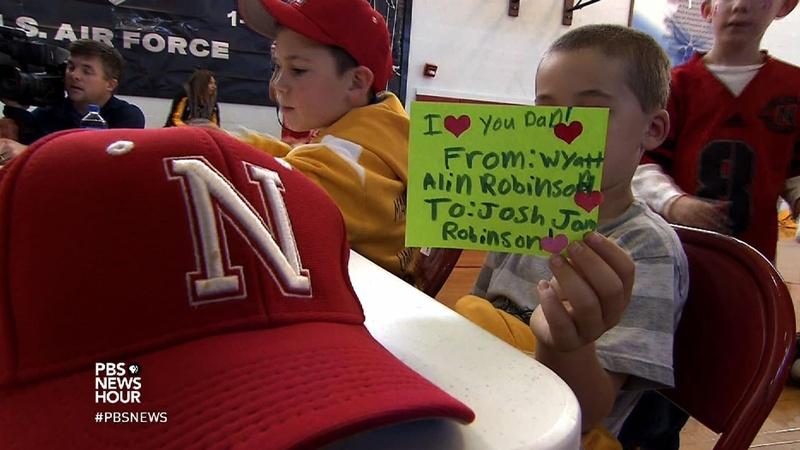 .S. AIR FORCE
I You Dad!
From: Wyatt
Alin Robinson
To: Josh
Robinson
N
8
PBS
NEWS
HOUR
#PBSNEWS